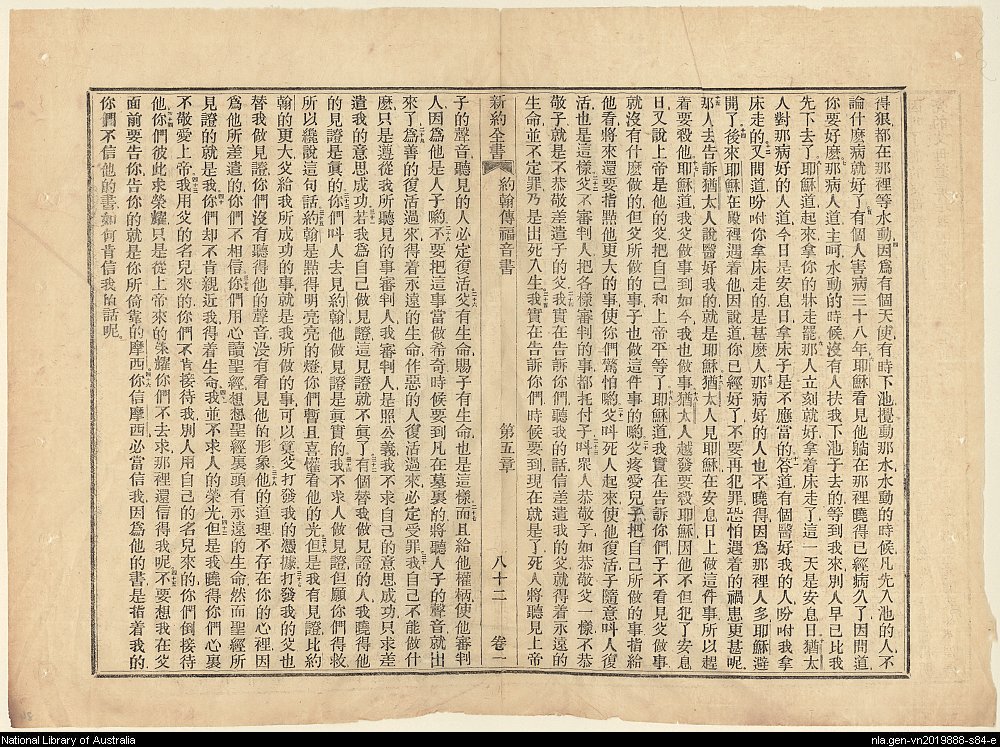 得狠都在那裡等水動因爲有個天使有時下池攪動那水水動的時候凡先入池的人不
論什麽病就好了有個人害病三十八年耶穌看見他躺在那裡曉得已經病久了因問道
你要好麽那病人道主呵水動的時候沒有人扶我下池子去的等到我來別人早已比我
先下去了耶穌道起來拿你的牀走罷那人立刻就好拿着床走了這一天是安息日猶太
人對那病好的人道今日是安息日拿床子是不應當的答道有個醫好我的人吩咐我拿
床走的又問道吩咐你拿床走的是甚麽人那病好的人也不曉得因爲那裡人多耶穌避
開了後來耶穌在殿裡遇着他因說道你已經好了不要再犯罪恐怕遇着的禍患更甚呢
那人去告訴猶太人說醫好我的就是耶穌猶太人見耶穌在安息日上做這件事所以趕
着要殺他耶穌道我父做事到如今我也做事猶太人越發要殺耶穌因他不但犯了安息
日又說上帝是他的父把自己和上帝平等了耶穌道我實在告訴你們子不看見父做事
就沒有什麽做的但父所做的事子也做這件事的喲父疼愛兒子把自己所做的事指給
他看將來還要指點他更大的事使你們驚怕喲父叫死人起來使他復活子隨意叫人復
活也是這樣父不審判人把各樣審判的事都托付子叫衆人恭敬子如恭敬父一樣不恭
敬子就是不恭敬差遣子的父我實在告訴你們聽我的話信差遣我的父就得着永遠的
生命並不定罪乃是出死入生我實在告訴你們時候要到現在就是了死人將聽見上帝
新約全書 約翰傳福音書 第五章 八十二 卷一
子的聲音聽見的人必定復活父有生命賜子有生命也是這樣而且給他權柄使他審判
人因爲他是人子喲不要把這事當做希奇時候要到凡在墓裏的將聽人子的聲音就出
來了爲善的復活過來得着永遠的生命作惡的復活過來必定受罪我自己不能做什
麽只是遵從我所聽見的事審判人我審判人是照公義我不求自己的意思成功只求差
遣我的意思成功若我爲自己做見證這見證就不眞了有個替我做見證的人我曉得他
的見證是眞的你們叫人去見約翰他做見證是眞實的我不求人做見證但願你們得救
所以纔說這句話約翰是點得明亮亮的燈你們暫且喜懽看他的光但是我有見證比約
翰的更大父給我所成功的事就是我所做的事可以眞父打發我的憑據打發我的父也
替我做見證你們沒有聽得他的聲音沒有看見他的形象他的道理不存在你的心裡因
爲他所差遣的你們不相信你們用心讀聖經想想聖經裏頭有永遠的生命然而聖經所
見證的就是我你們却不肯親近我得着生命我並不求人的榮光但是我曉得你們心裏
不敬愛上帝我用父的名兒來的你們不肯接待我別人用自己的名兒來的你們倒接待
他你們彼此求榮耀只是從上帝來的榮耀你們不去求那裡還信得我呢不要想我在父
面前要告你告你的就是你所倚靠的摩西你信摩西必當信我因爲他的書是指着我的
你們不信他的書如何肯信我的話呢
National Library of Australia
nla.gen-vn2019888-s84-e